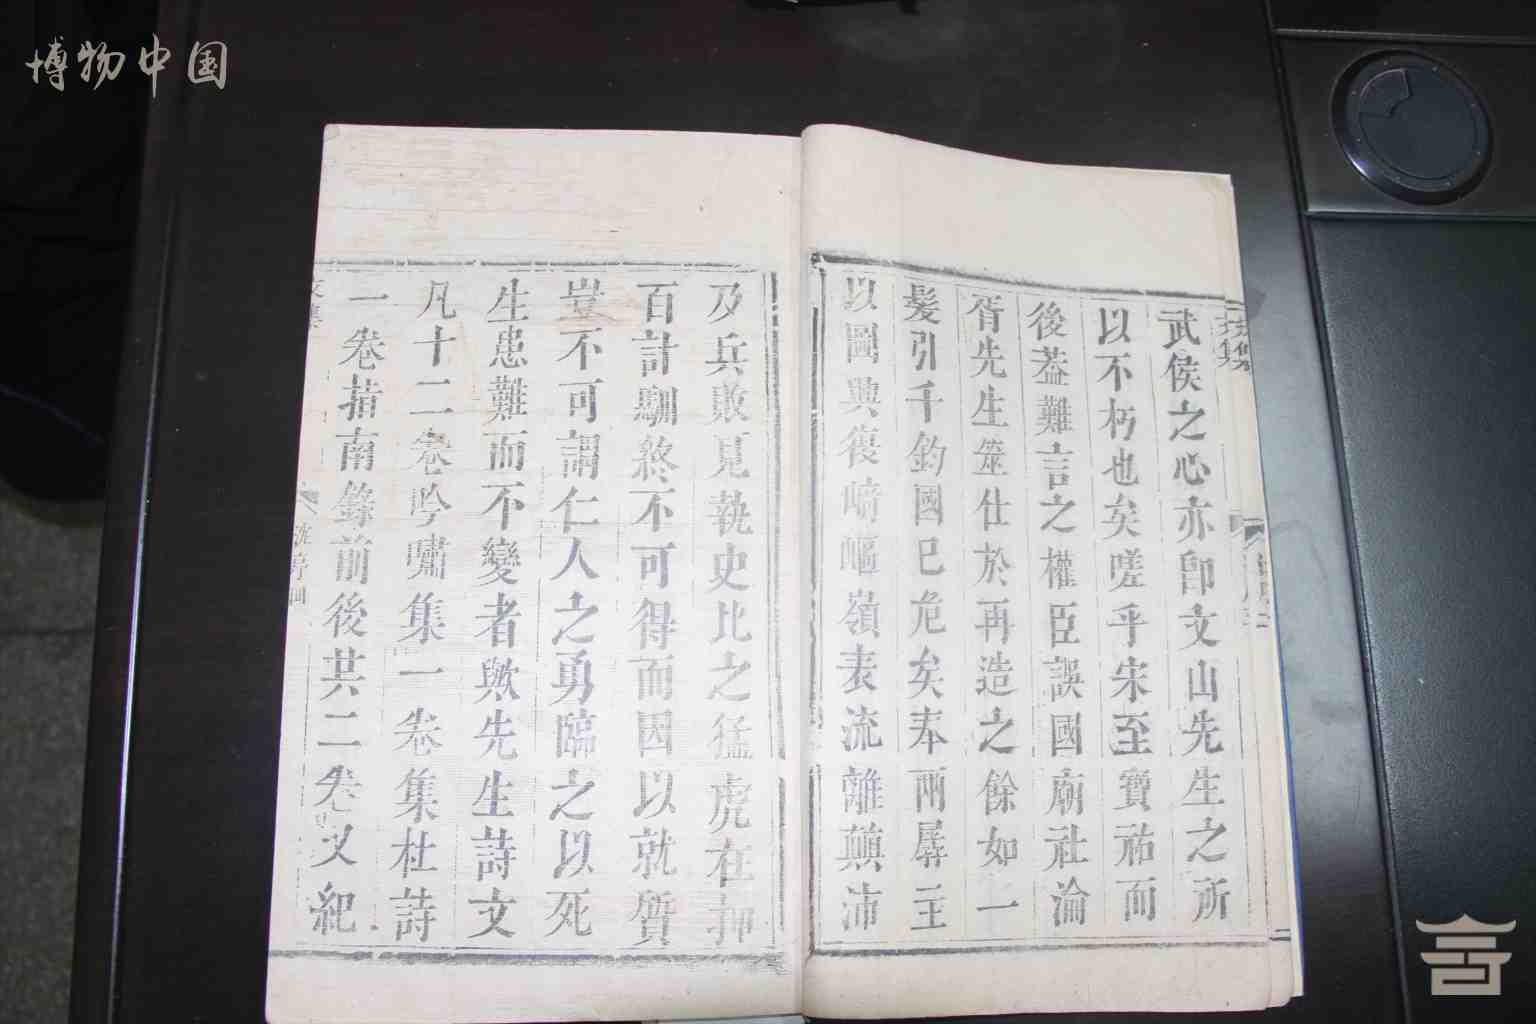 博物中国
武侯之心亦卽文山先生之所
以不朽也矣嗟乎宋至寶祐而
後葢難言之權臣誤國廟社淪
胥先生筮仕於再造之餘如一
髮引千鈞國已危矣奉兩孱主
以圖興復崎嶇嶺表流離顛沛
及兵敗見執史比之猛虎在押
百計馴終不可得而因以就質
豈不可謂仁人之勇臨之以死
生患難而不變者歟先生詩文
凡十二卷吟嘯集一卷集杜詩
一卷指南錄前後共二卷又紀